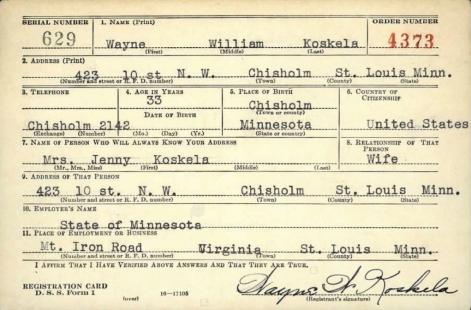 SERIAL NUMBER 1. NAME (Print) ORDER NUMBER
629 Wayne William Koskela 4373
(First) (Middle) (Last)
2. ADDRESS (Print)
423 10 st N. W. Chisholm St. Louis Minn.
(Number and street or R. F. D. number) (Town) (County) (State)
3. TELEPHONE 4. AGE IN YEARS 5. PLACE OF BIRTH 6. COUNTRY OF CITIZENSHIP
33 Chisholm
DATE OF BIRTH (Town or county)
Chisholm 2142 Minnesota United States
(Exchange) (Number) (Mo.) (Day) (Yr.) (State or country)
7. NAME OF PERSON WHO WILL ALWAYS KNOW YOUR ADDRESS 8. RELATIONSHIP OF THAT PERSON
Mrs. Jenny Koskela Wife
(Mr., Mrs., Miss) (First) (Middle) (Last)
9. ADDRESS OF THAT PERSON
423 10 st. N. W. Chisholm St. Louis Minn.
(Number and street or R. F. D. number) (Town) (County) (State)
10. EMPLOYER'S NAME
State of Minnesota
11. PLACE OF EMPLOYMENT OR BUSINESS
Mt. Iron Road Virginia St. Louis Minn.
(Number and street or R. F. D. number) (Town) (County) (State)
I AFFIRM THAT I HAVE VERIFIED ABOVE ANSWERS AND THAT THEY ARE TRUE.
REGISTRATION CARD
D. S. S. Form 1 (over) 16—17105 Wayne W Koskela
(Registrant's signature)